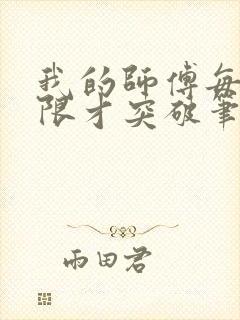 我的師傅每
限才突破筆
雨田君